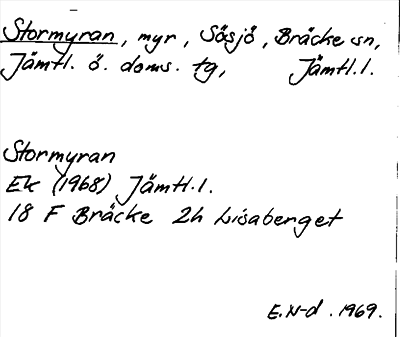 Stormyran, myr, Sösjö, Bräcke sn,
Jämtl. ö. doms. tg, Jämtl.l.
Stormyran
Ek (1968) Jämtl.l.
18 F Bräcke 2h Lisaberget
E.N-d. 1969.